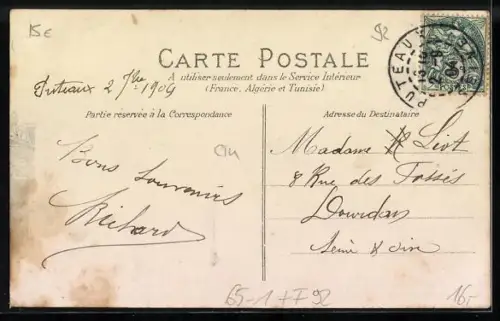 15€
92
CARTE POSTALE
A utiliser seulement dans le Service Intérieur
(France, Algérie et Tunisie)
Puteaux 2 7bre 1904
Partie réservée à la Correspondance
Adresse du Destinataire
Bons souvenirs
Richard
Madame Liot
8 Rue des Fossés
Dourdan
Seine & Oise
PUTEAUX
65-1 FF 92
16,-